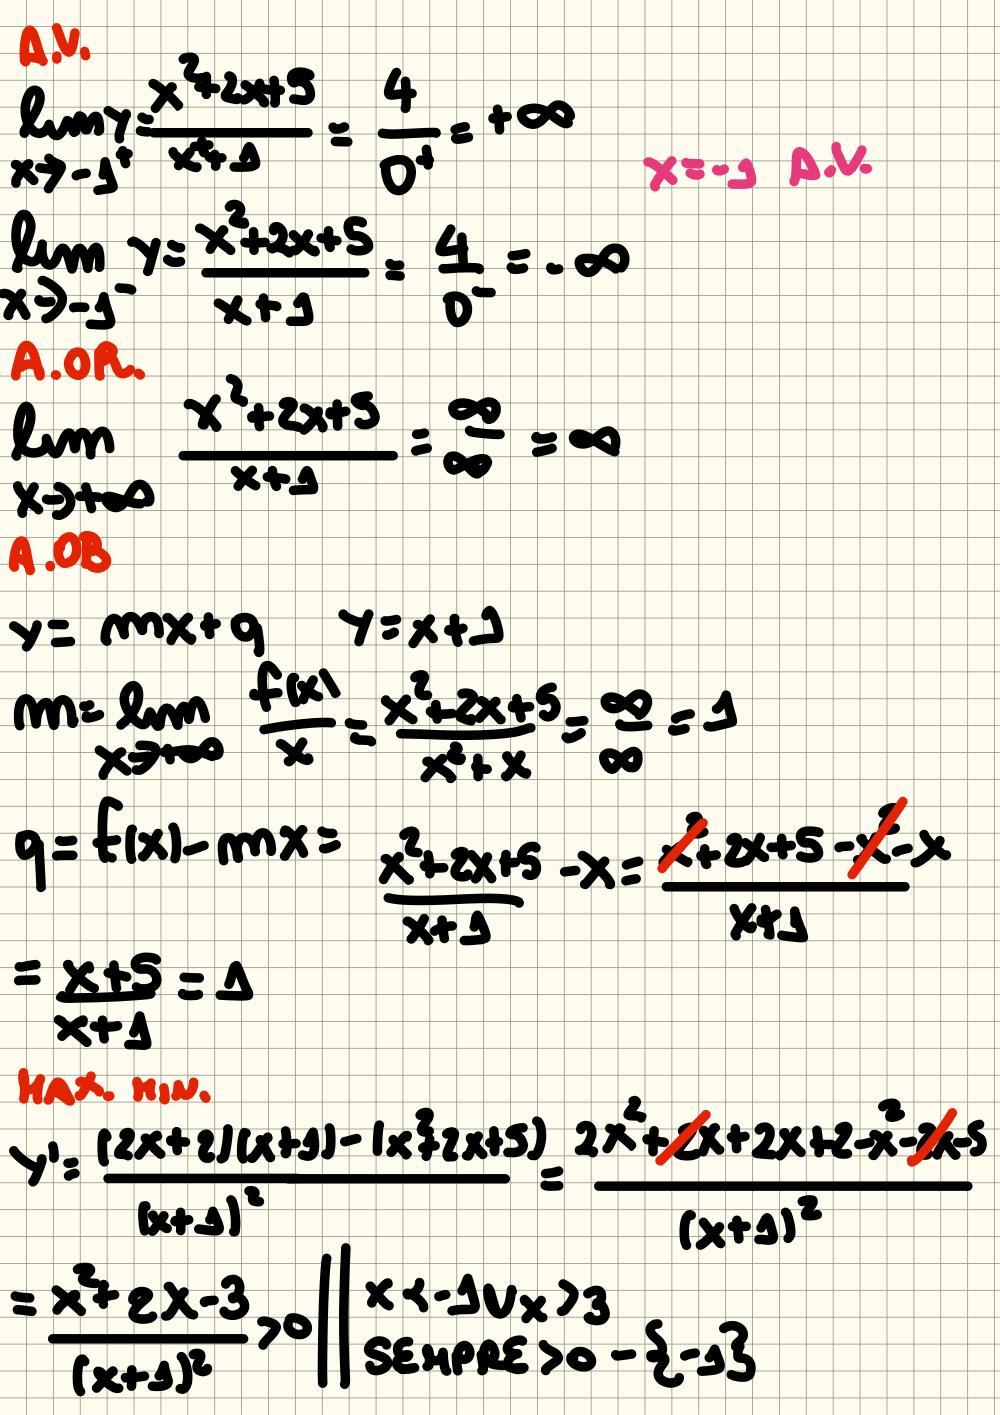 A.V.
lim y = x²+2x+5 / x+1 = 4/0⁺ = +∞
x→-1⁺
x=-1 A.V.
lim y = x²+2x+5 / x+1 = 4/0⁻ = -∞
x→-1⁻
A.OR.
lim x²+2x+5 / x+1 = ∞/∞ = ∞
x→+∞
A.OB
y = mx+q y=x+1
m = lim f(x)/x = x²+2x+5 / x²+x = ∞/∞ = 1
x→+∞
q = f(x)-mx = x²+2x+5 / x+1 -x = x²+2x+5-x²-x / x+1
= x+5 / x+1 = 1
MAX. MIN.
y' = (2x+2)(x+1)-(x²+2x+5) / (x+1)² = 2x²+2x+2x+2-x²-2x-5 / (x+1)²
= x²+2x-3 / (x+1)² >0 || x<-1 ∪ x>3
SEMPRE >0 - {-1}